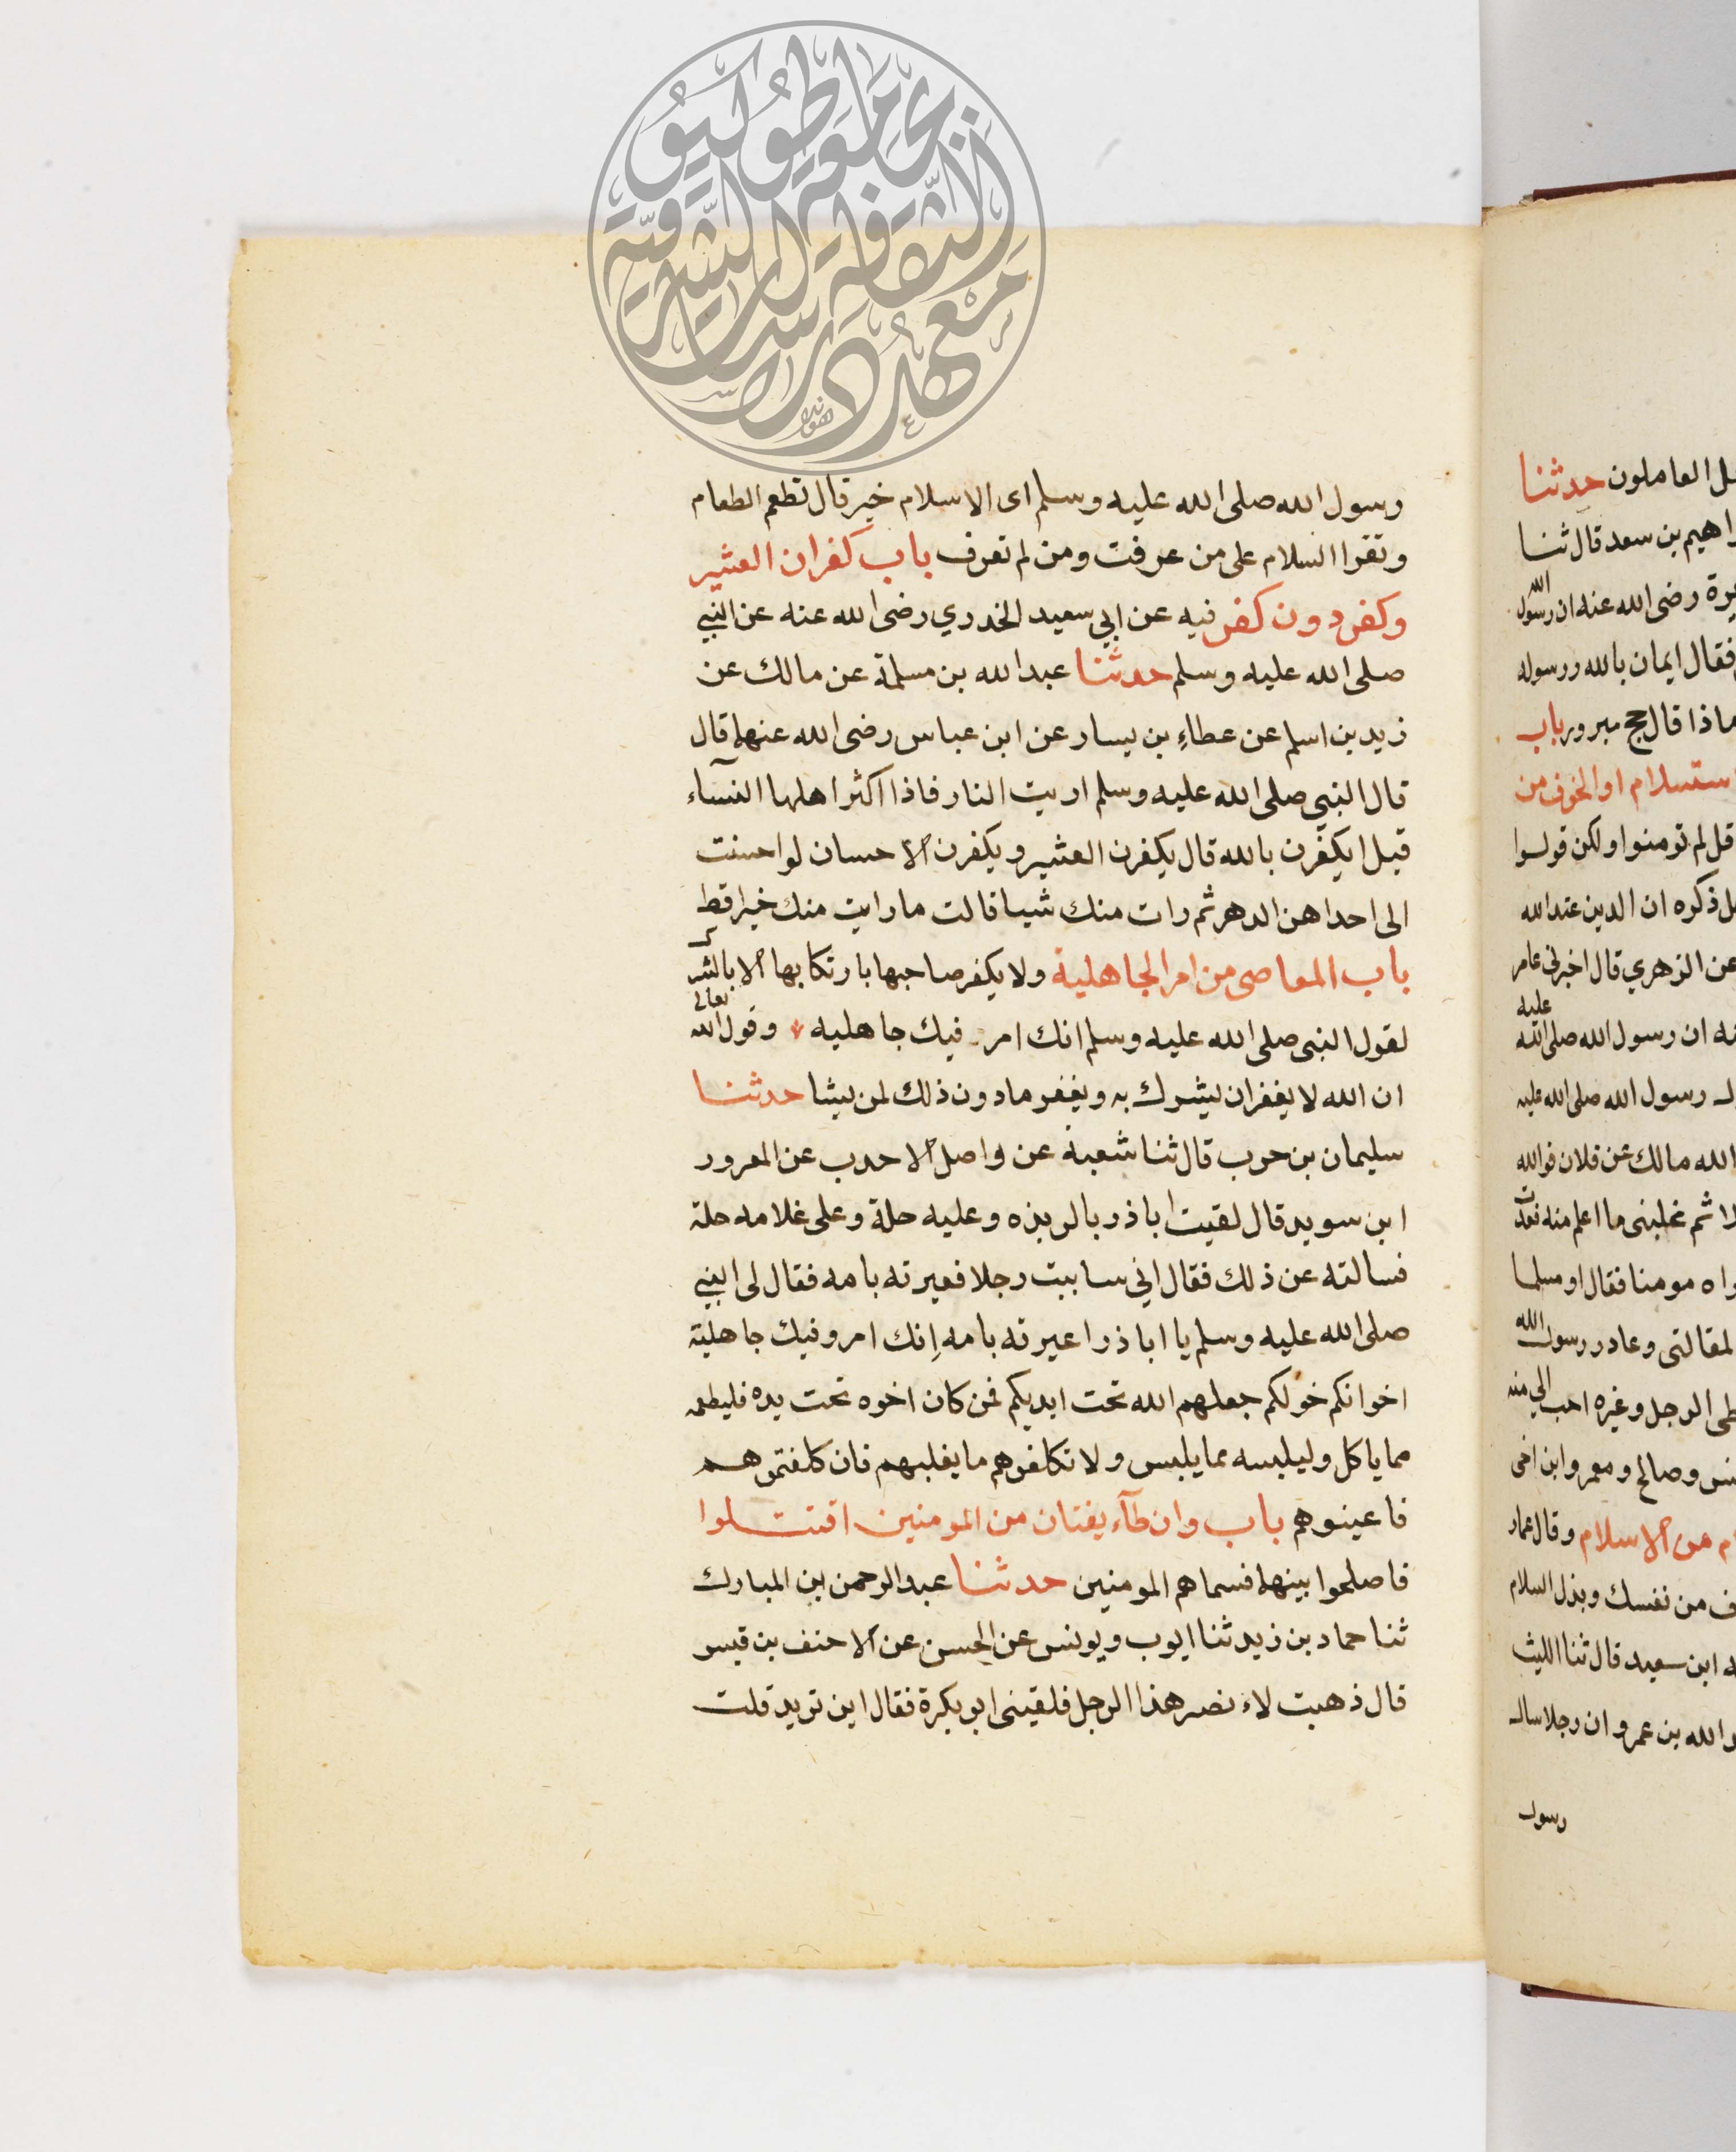 رسول الله صلى الله عليه وسلم اى الاسلام خير قال تطعم الطعام
وتقرا السلام على من عرفت ومن لم تعرف باب كفران العشير
وكفر دون كفر فيه عن ابي سعيد الخدري رضى الله عنه عن النبي
صلى الله عليه وسلم حدثنا عبد الله بن مسلمة عن مالك عن
زيد بن اسلم عن عطاءِ بن يسار عن ابن عباس رضى الله عنهما قال
قال النبي صلى الله عليه وسلم اريت النار فاذا اكثر اهلها النسآء
قيل ايكفرن بالله قال يكفرن العشير ويكفرن الاحسان لو احسنت
الى احداهن الدهر ثم رات منك شيا قالت ما رايت منك خيرا قط
باب المعاصى من امر الجاهلية ولا يكفر صاحبها بارتكابها الا بالشرك
لقول النبى صلى الله عليه وسلم انك امر فيك جاهليه وقول الله تعالى
ان الله لا يغفر ان يشرك به ويغفر ما دون ذلك لمن يشا حدثنا
سليمان بن حرب قال ثنا شعبة عن واصل الاحدب عن المعرور
ابن سويد قال لقيت اباذر بالربذه وعليه حلة وعلى غلامه حلة
فسالته عن ذلك فقال اني ساببت رجلا فعيرته بامه فقال لى النبي
صلى الله عليه وسلم يا اباذر اعيرته بامه إنك امرو فيك جاهلية
اخوانكم خولكم جعلهم الله تحت ايديكم فمن كان اخوه تحت يده فليطعمه
مما ياكل وليلبسه مما يلبس ولا تكلفوهم ما يغلبهم فان كلفتموهم
فاعينوهم باب وان طآءيفتان من المومنين اقتتلوا
فاصلحوا بينهما فسماهم المومنين حدثنا عبد الرحمن بن المبارك
ثنا حماد بن زيد ثنا ايوب ويونس عن الحسن عن الاحنف بن قيس
قال ذهبت لاء نصر هذا الرجل فلقينى ابو بكرة فقال اين تريد قلت
العاملون حدثنا
اهيم بن سعد قال ثنا
رضى الله عنه ان رسول الله
فقال ايمان بالله ورسوله
ماذا قال حج مبرور باب
استسلام او الخوف من
قل لم تومنوا ولكن قولوا
ذكره ان الدين عند الله
عن الزهري قال اخبرني عامر
ان رسول الله صلى الله عليه
رسول الله صلى الله عليه
الله مالك عن فلان فوالله
ثم غلبنى ما اعلم منه فعدت
مومنا فقال او مسلما
لمقالتى وعاد رسول الله
الرجل وغيره احب الي منه
وصالح ومعمر وابن اخى
من الاسلام وقال عمار
من نفسك وبذل السلام
ابن سعيد قال ثنا الليث
الله بن عمرو ان رجلا سال
رسول
معهد الثقافة والدراسات الشرقية
بجامعة طوكيو